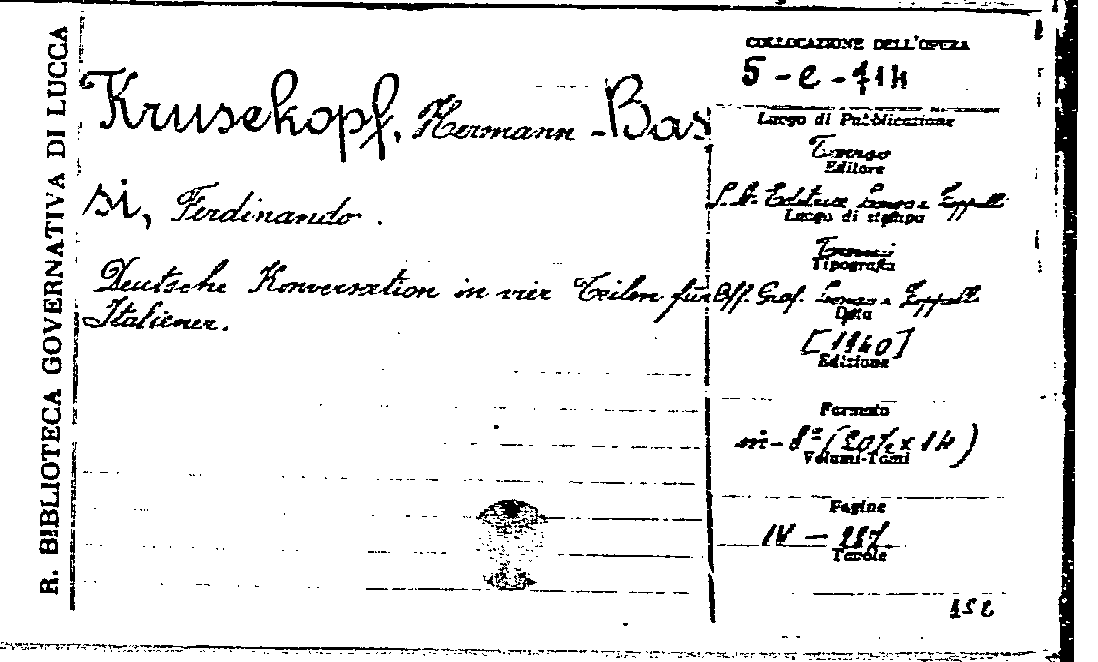 R. BIBLIOTECA GOVERNATIVA DI LUCCA
Krusekopf, Hermann - Bas
si, Ferdinando.
Deutsche Konversation in vier Teilen für
Italiener.
COLLOCAZIONE DELL'OPERA
5 - e - 714
Luogo di Pubblicazione
Editore
S.A. Editrice Longo e Zoppelli
Luogo di stampa
Tipografia
Off. Graf. Longo e Zoppelli
Data
[1940]
Edizione
Formato
in - 8º (20½ x 14)
Volumi-Tomi
Pagine
IV — 287
Tavole